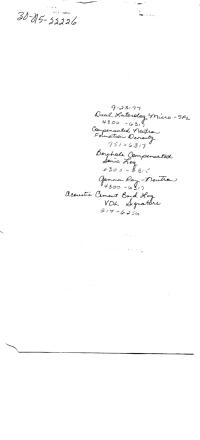 30-015-22226
9-23-77
Dual Laterolog Micro-SFL
4300-6319
Compensated Neutron
Formation Density
751-6317
Borehole Compensated
Sonic Log
4300-6315
Gamma Ray-Neutron
4300-6317
Acoustic Cement Bond Log
VDL Signature